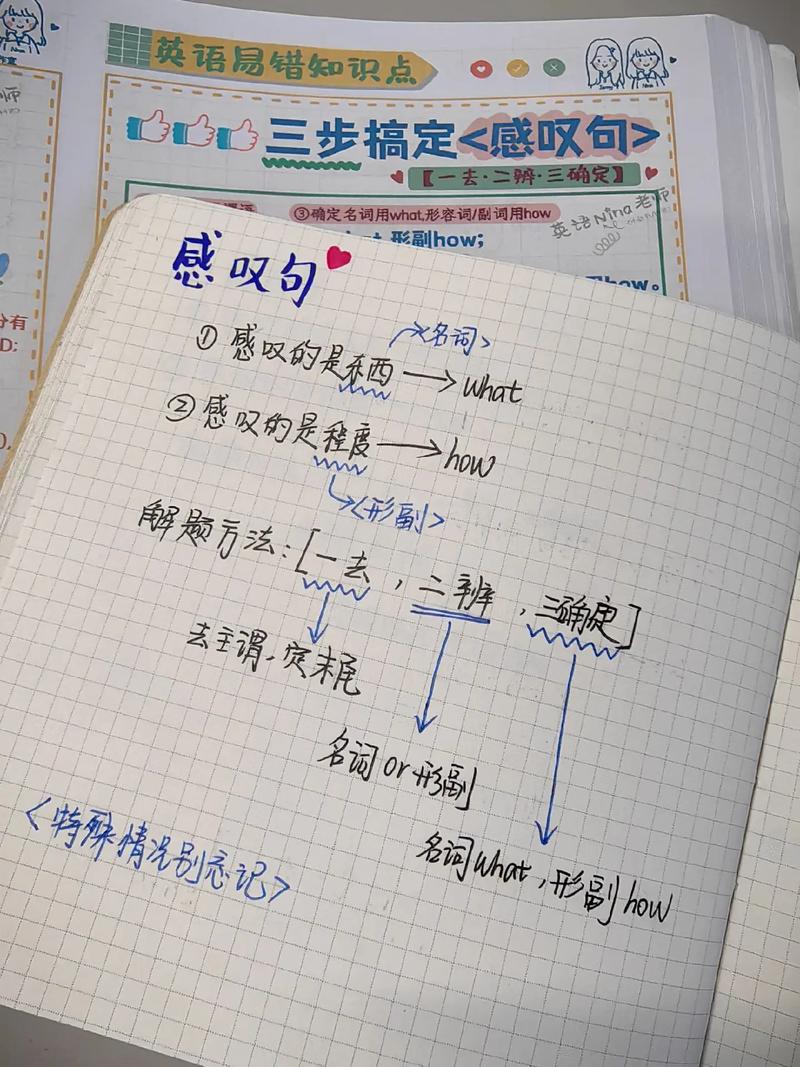 英语易错知识点
三步搞定<感叹句>
【一去·二辨·三确定】
③确定名词用what,形容词/副词用how
英语Nina老师
形副how;
how。
分有
D:
感叹句
①感叹的是东西→what
<名词>
②感叹的是程度→how
<形副>
解题方法:[一去,二辨,三确定]
去主谓,定末尾
名词or形副
名词what,形副how
<特殊情况别忘记>